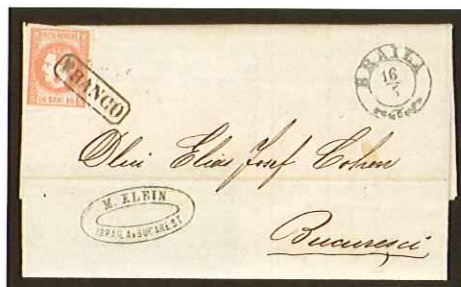 FRANCO
BRAILA
16
5
Dlui Elias Josef Cohen
M. KLEIN
IBRAILA & BUCAREST
Bucuresci